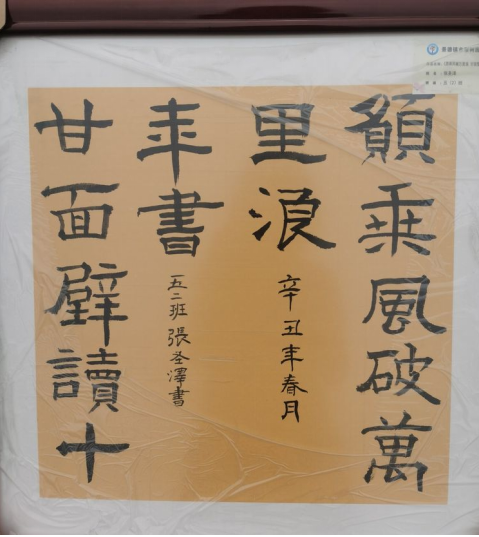 願乘風破萬
里浪
辛丑年春月
甘面壁讀十
年書
五二班張圣澤書